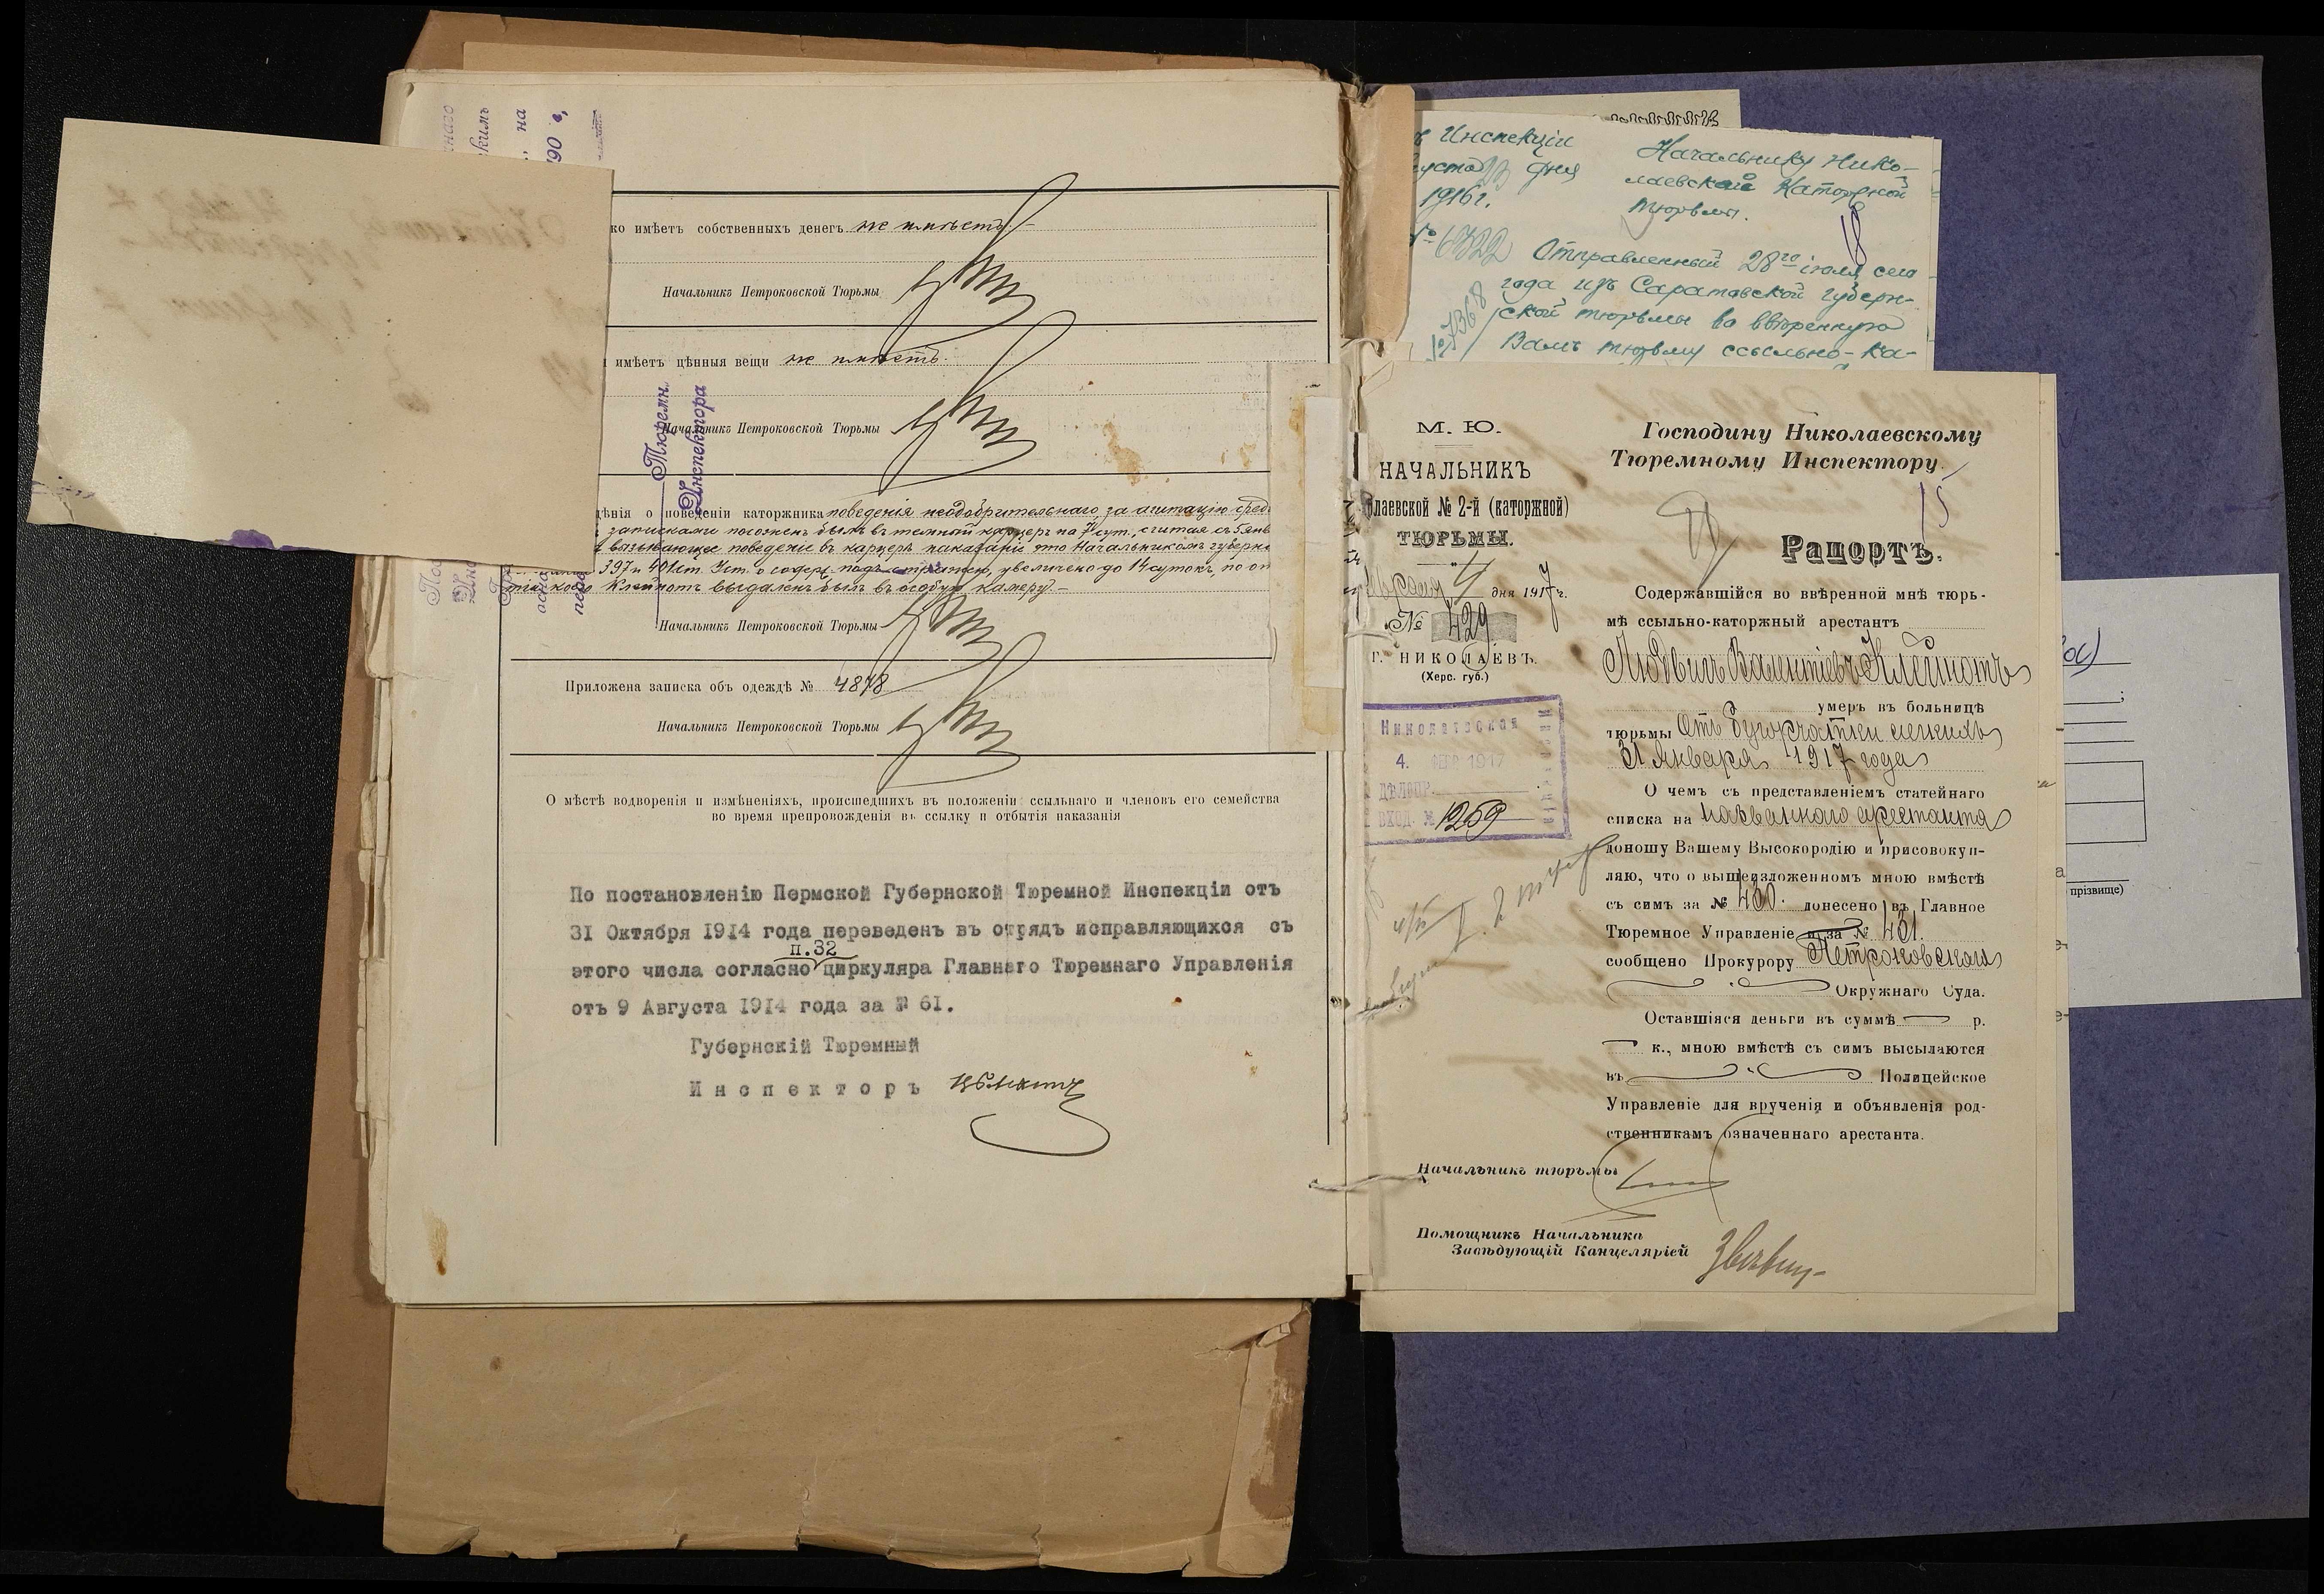 на
190 г.,
ко имѣетъ собственныхъ денегъ не имѣетъ.
Начальникъ Петроковской Тюрьмы
имѣетъ цѣнныя вещи не имѣетъ.
Тюремн.
Инспектора
Начальникъ Петроковской Тюрьмы
дѣнія о поведеніи каторжника поведенія неодобрительнаго, за агитацію сред
записками посаженъ былъ въ темный карцеръ на 7 сут., считая съ 5 янв
вызывающее поведеніе въ карцерѣ наказаніе это Начальникомъ губерн
397 и 401 ст. Уст. о содерж. подъ стражею, увеличено до 14 сутокъ, по от
Клейнотъ выдаленъ былъ въ особую камеру. —
Начальникъ Петроковской Тюрьмы
Приложена записка объ одеждѣ № 4878
Начальникъ Петроковской Тюрьмы
О мѣстѣ водворенія и измѣненіяхъ, происшедшихъ въ положеніи ссыльнаго и членовъ его семейства
во время препровожденія въ ссылку и отбытія наказанія
По постановленію Пермской Губернской Тюремной Инспекціи отъ
31 Октября 1914 года переведенъ въ отрядъ исправляющихся съ
п.32
этого числа согласно циркуляра Главнаго Тюремнаго Управленія
отъ 9 Августа 1914 года за № 61.
Губернскій Тюремный
Инспекторъ
Инспекціи
густа 13 дня
1916 г.
№ 6322
№ 7368
Начальнику Нико-
лаевской Каторжной
тюрьмы.
18
Отправленный 28го іюля сего
года изъ Саратовской губерн-
ской тюрьмы во ввѣренную
Вамъ тюрьму ссыльно-ка-
М. Ю.
НАЧАЛЬНИКЪ
лаевской № 2-й (каторжной)
ТЮРЬМЫ.
4 дня 1917 г.
№ 429
Г. НИКОЛАЕВЪ.
(Херс. губ.)
Николаевская
4. ФЕВР 1917
ДѢЛОПР.
ВХОД. № 1259
Господину Николаевскому
Тюремному Инспектору.
15
Рапортъ.
Содержавшійся во ввѣренной мнѣ тюрь-
мѣ ссыльно-каторжный арестантъ
Людвигъ Валентіевъ Клейнотъ
умеръ въ больницѣ
тюрьмы отъ бугорчатки легкихъ
31 Января 1917 года
О чемъ съ представленіемъ статейнаго
списка на названнаго арестанта
доношу Вашему Высокородію и присовокуп-
ляю, что о вышеизложенномъ мною вмѣстѣ
съ симъ за № 430. донесено въ Главное
Тюремное Управленіе и за № 431.
сообщено Прокурору Петроковскаго
Окружнаго Суда.
Оставшіяся деньги въ суммѣ — р.
— к., мною вмѣстѣ съ симъ высылаются
въ Полицейское
Управленіе для врученія и объявленія род-
ственникамъ означеннаго арестанта.
Начальникъ тюрьмы
Помощникъ Начальника
Завѣдующій Канцеляріей
прізвище)